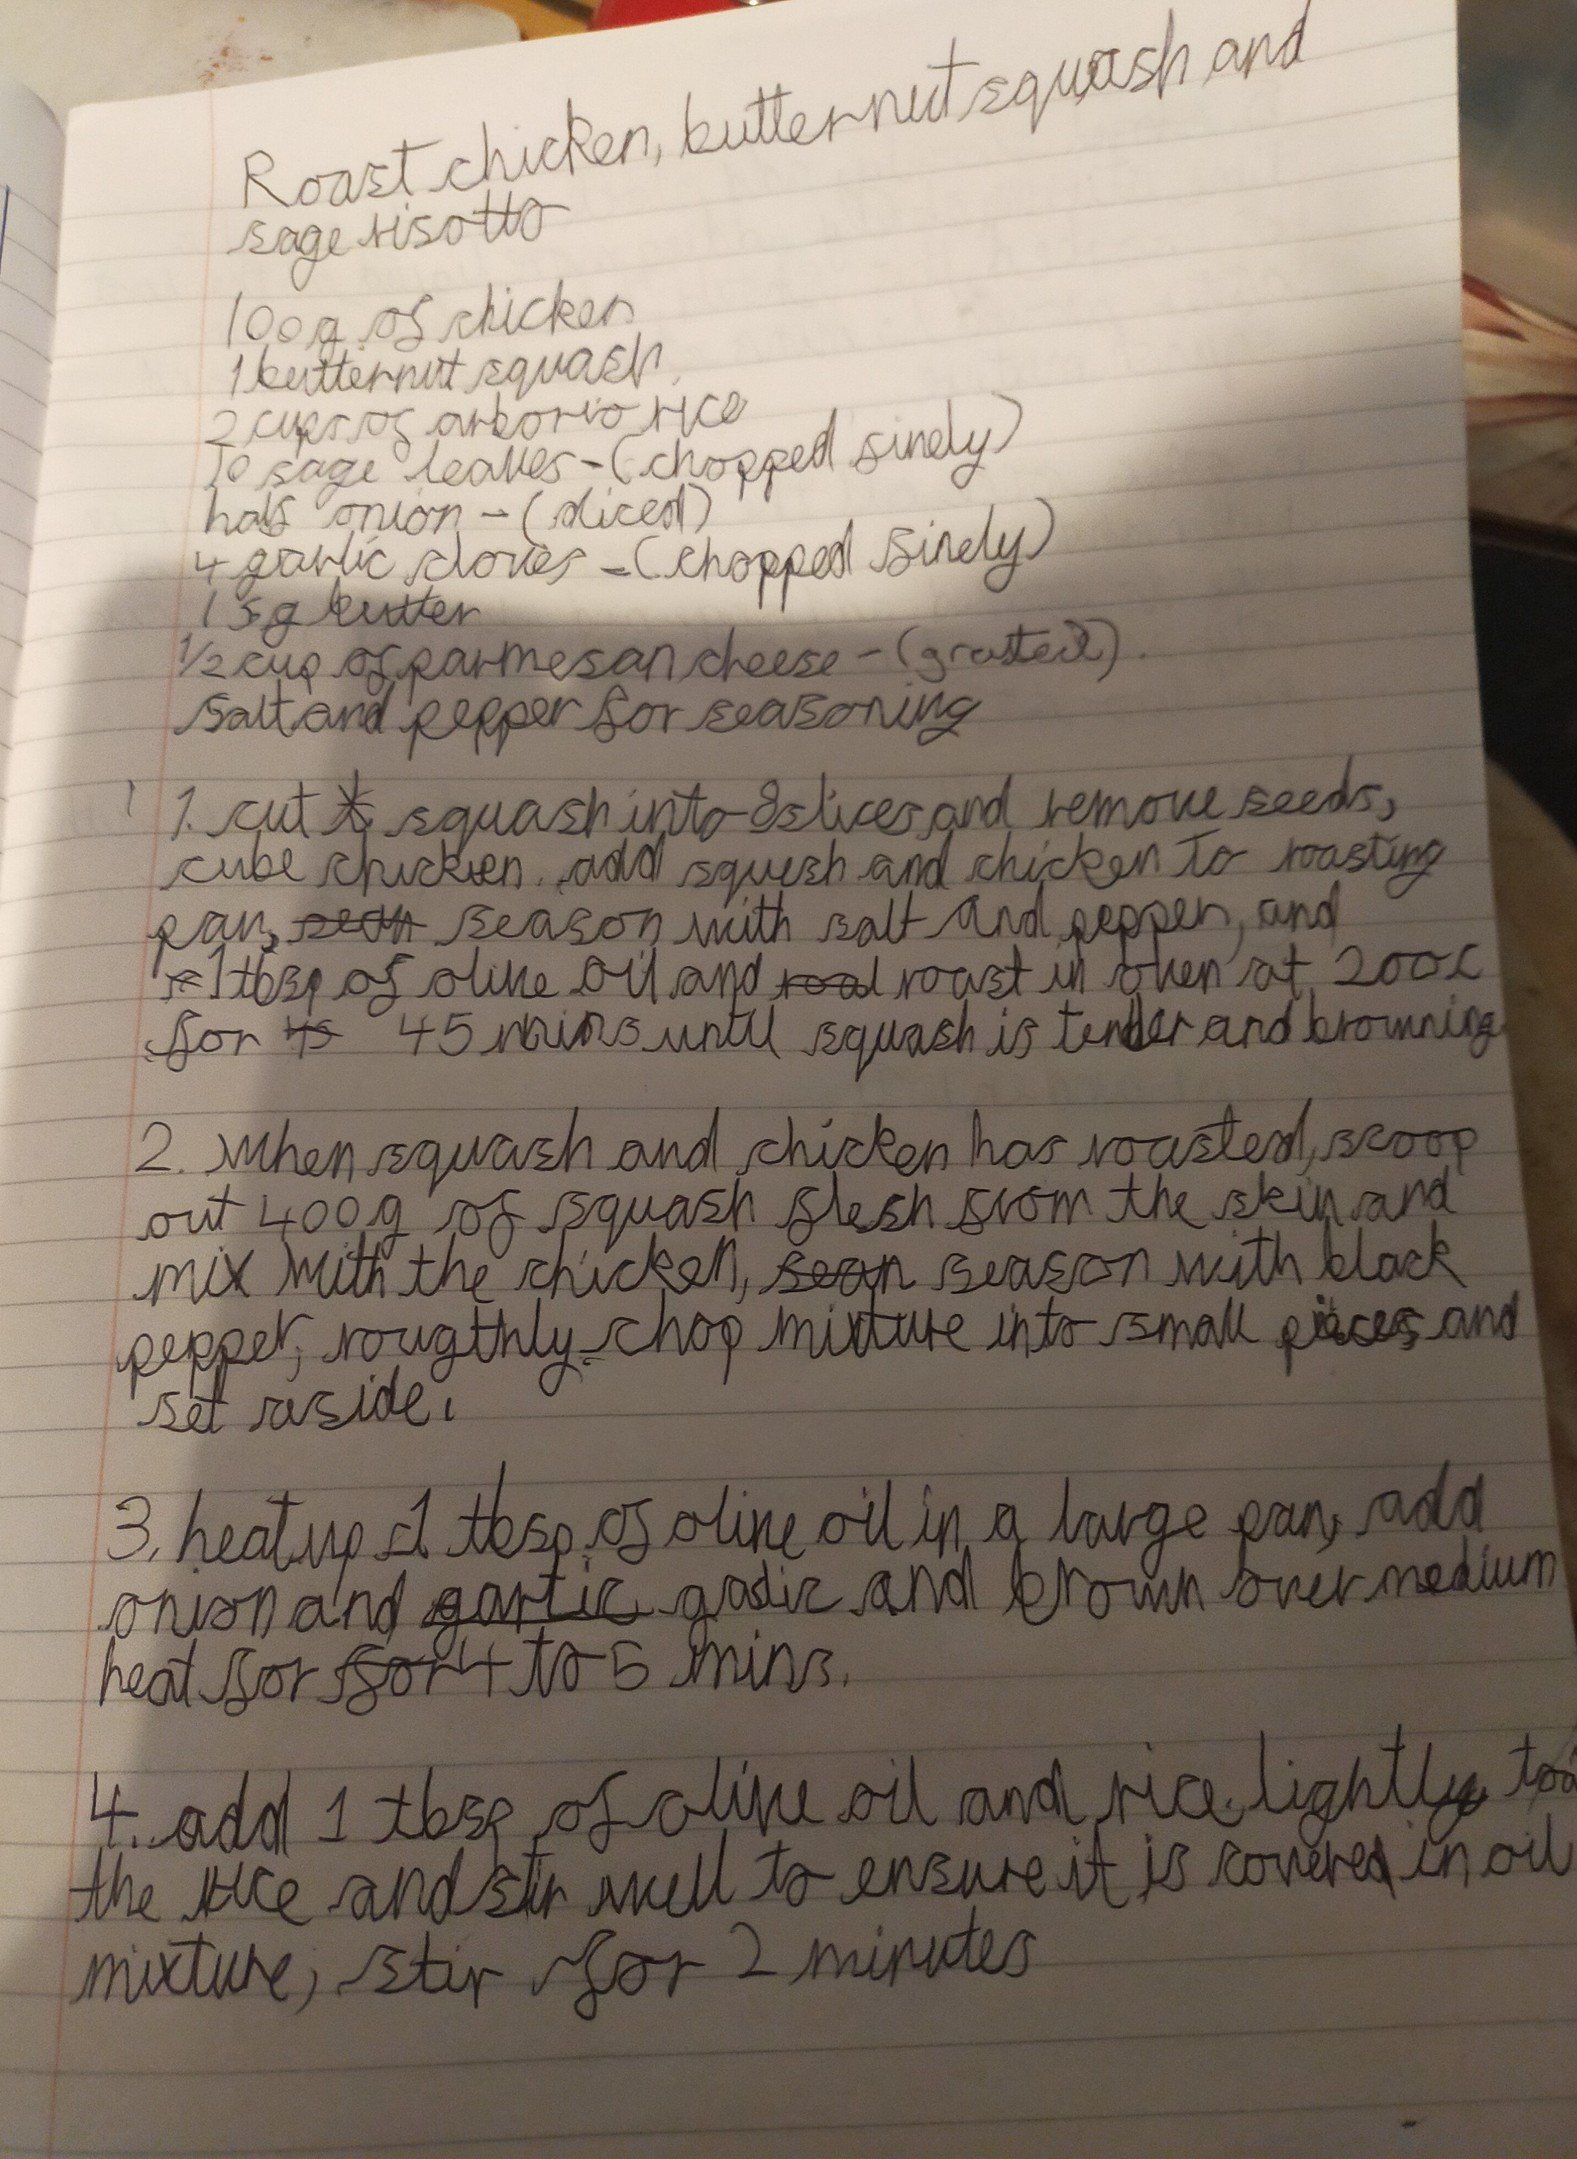 Roast chicken, butternut squash and
sage risotto
100g of chicken
1 butternut squash
2 cups of arborio rice
10 sage leaves - (chopped finely)
half onion - (sliced)
4 garlic cloves - (chopped finely)
15g butter
1/2 cup of parmesan cheese - (grated).
Salt and pepper for seasoning
1. cut squash into 8 slices and remove seeds,
cube chicken. add squash and chicken to roasting
pan, season with salt and pepper, and
1 tbsp of olive oil and roast in oven at 200c
for 45 mins until squash is tender and browning
2. When squash and chicken has roasted, scoop
out 400g of squash flesh from the skin and
mix with the chicken, season with black
pepper, roughtly chop mixture into small pieces and
set aside.
3. heat up 1 tbsp of olive oil in a large pan, add
onion and garlic and brown over medium
heat for 4 to 5 mins.
4. add 1 tbsp of olive oil and rice. lightly
the rice and stir well to ensure it is covered in oil
mixture, stir for 2 minutes